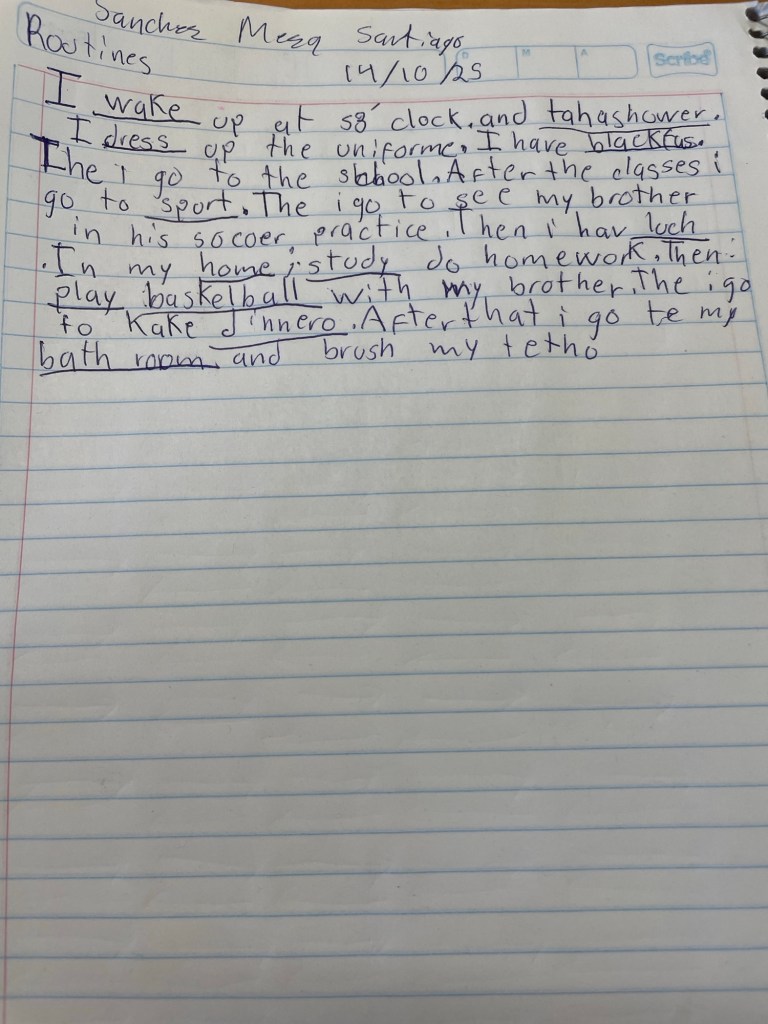 Sanchez Meza Santiago
Routines
14/10/25
D M A
Scribe
I wake up at s8'clock.and tahashower.
I dress up the uniforme. I have blackfus.
The i go to the school. After the classes i
go to sport. The i go to see my brother
in his socoer practice. Then i hav luch
.In my home i study do homework. Then i
play baskelball with my brother. The i go
to Kake dinnero. After that i go te my
bath room and brush my tetho